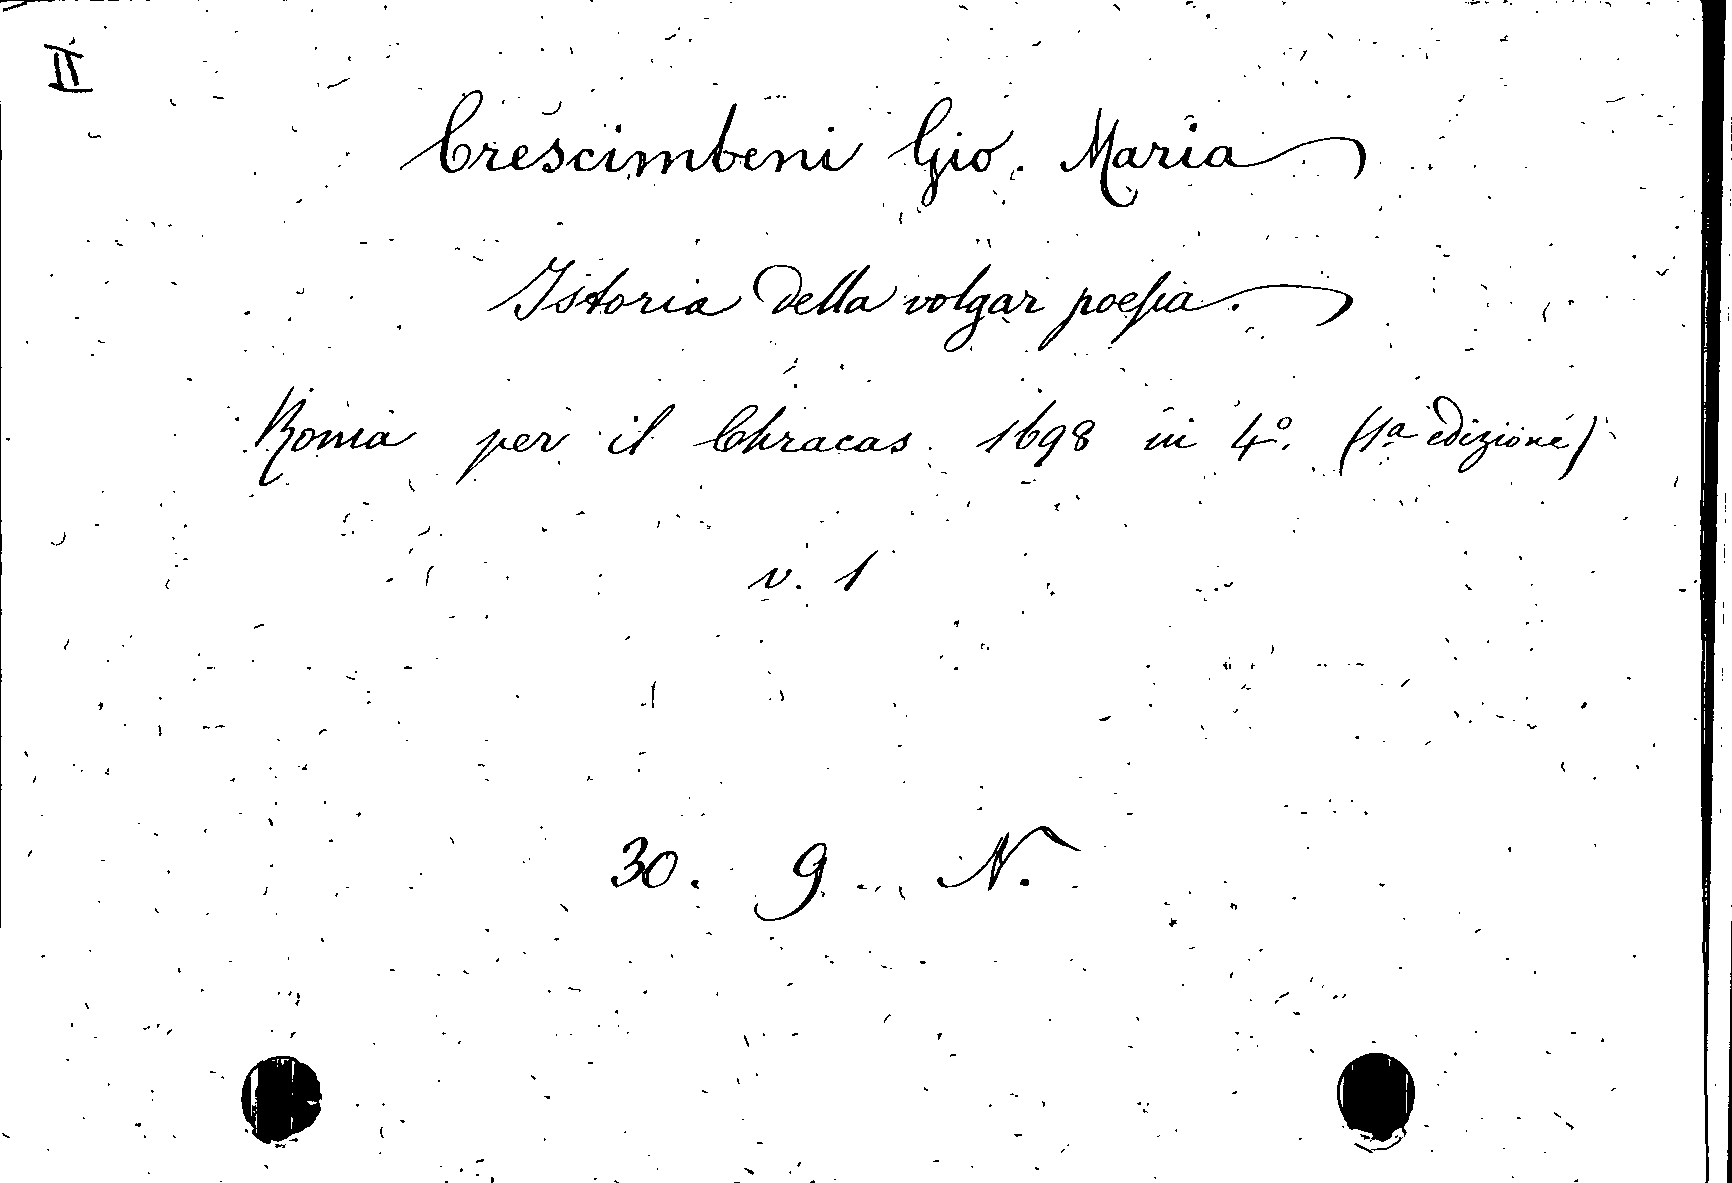 II
Crescimbeni Gio. Maria
Istoria della volgar poesia.
Roma per il Chracas 1698 in 4º. (1ª edizione)
v. 1
30. 9. N.